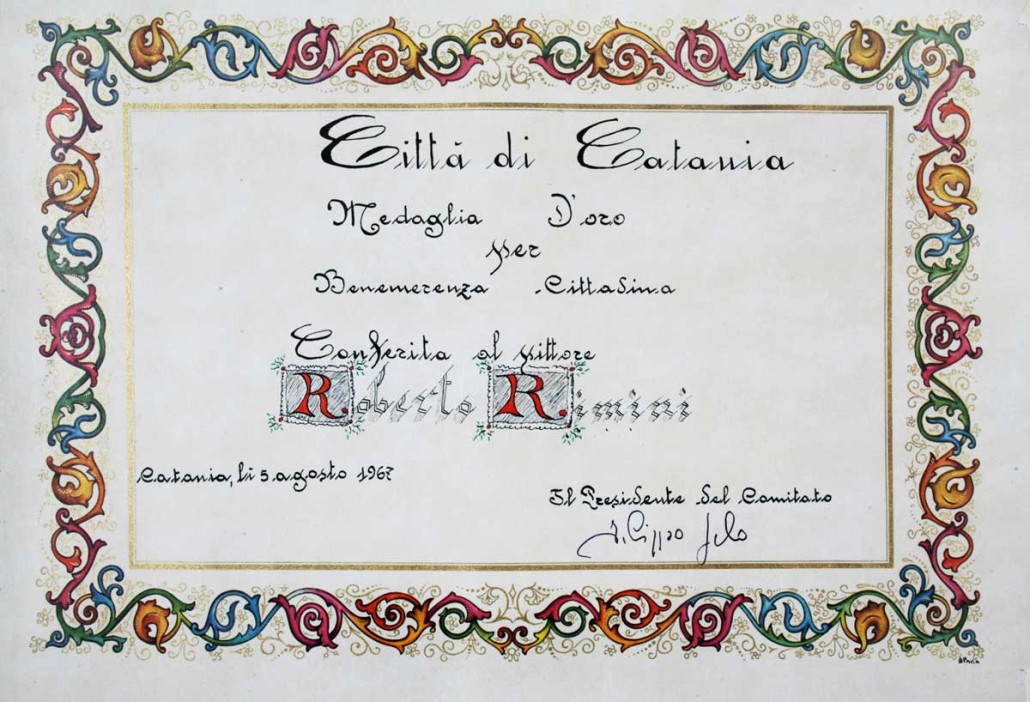 Città di Catania
Medaglia D'oro
per
Benemerenza Cittadina
Conferita al pittore
Roberto Rimini
Catania, li 5 agosto 1967
Il Presidente del Comitato